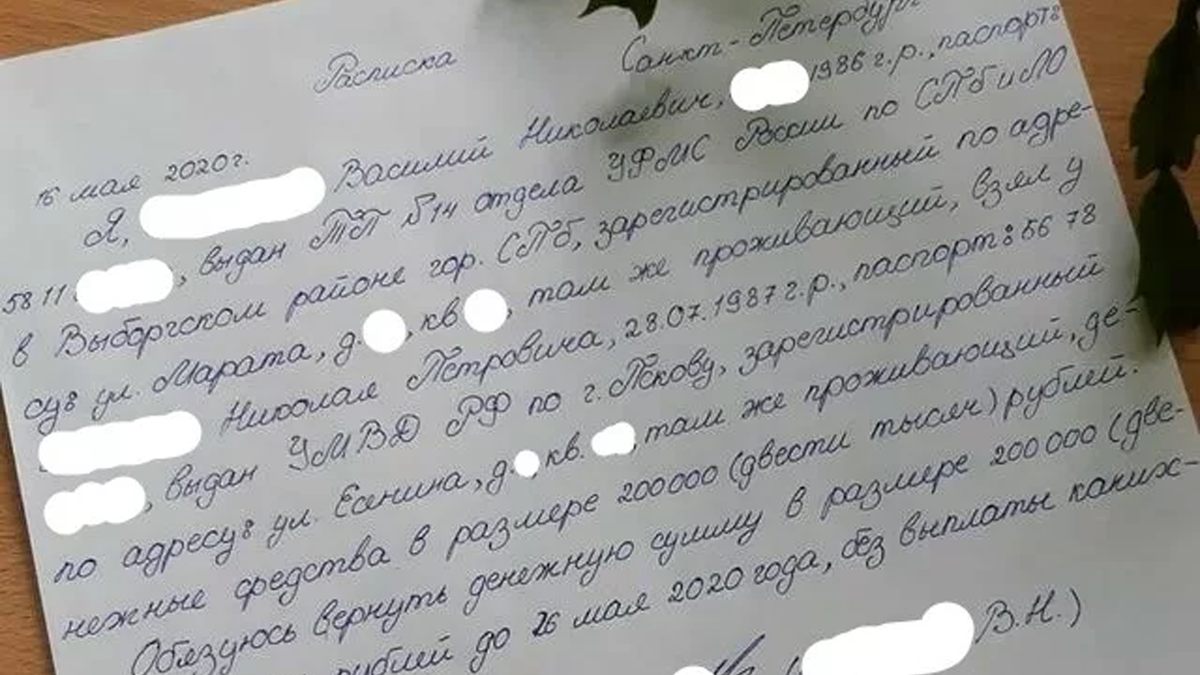 Расписка
Санкт-Петербург
16 мая 2020г.
Я, Василий Николаевич, 1986 г.р., паспорт:
58 11 , выдан ТП №14 отдела УФМС России по СПб и ЛО
в Выборгском районе гор. СПб, зарегистрированный по адре-
су: ул. Марата, д. , кв , там же проживающий, взял у
Николая Петровича, 28.07.1987 г.р., паспорт: 56 78
, выдан УМВД РФ по г. Пскову, зарегистрированный
по адресу: ул. Есенина, д. , кв. , там же проживающий, де-
нежные средства в размере 200000 (двести тысяч) рублей.
Обязуюсь вернуть денежную сумму в размере 200 000 (две-
рублей до 26 мая 2020 года, без выплаты каких-
( В.Н.)